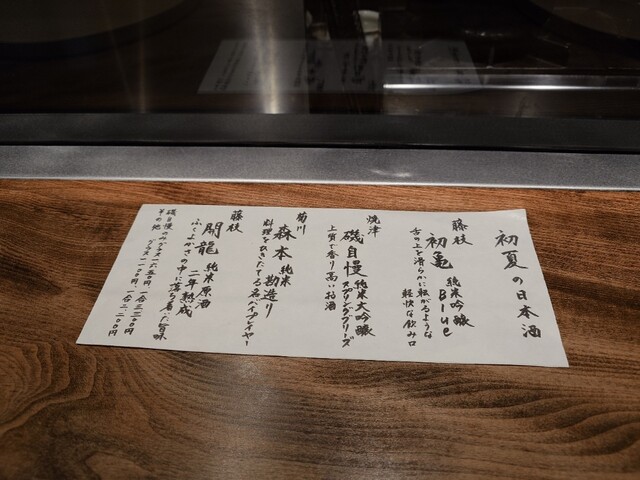 初夏の日本酒
藤枝
初亀 純米吟醸 Blue
舌の上を滑らかに転がるような
軽快な飲み口
焼津
磯自慢 純米大吟醸 スプリングブリーズ
上質で香り高いお酒
菊川
森本 純米 勘造り
料理をひきたてる名バイプレイヤー
藤枝
開龍 純米原酒 二年熟成
ふくよかさの中に落ち着いた旨味
磯自慢のみグラス一六五〇円 一合三三〇〇円
その他 グラス一一〇〇円 一合二二〇〇円